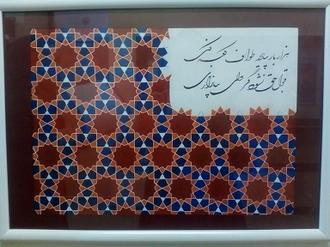 هزار بار پیاده طواف کعبه کنی
قبول حق نشود گر دلی بیازاری